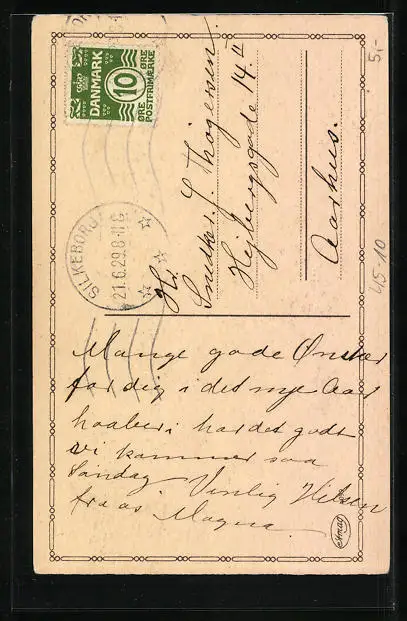 DANMARK
10
ØRE ØRE
POSTFRIMÆRKE
SILKEBORG
21.6.29.8-11 E
Hr.
Snedker. S. Thøgersen.
Hejbergsgade 14.II
Aarhus.
5,-
45-10
Mange gode Ønsker
for dig i det nye Aar
haaber i har det godt
vi kommer saa
Søndag Venlig Hilsen
fra os Magna.